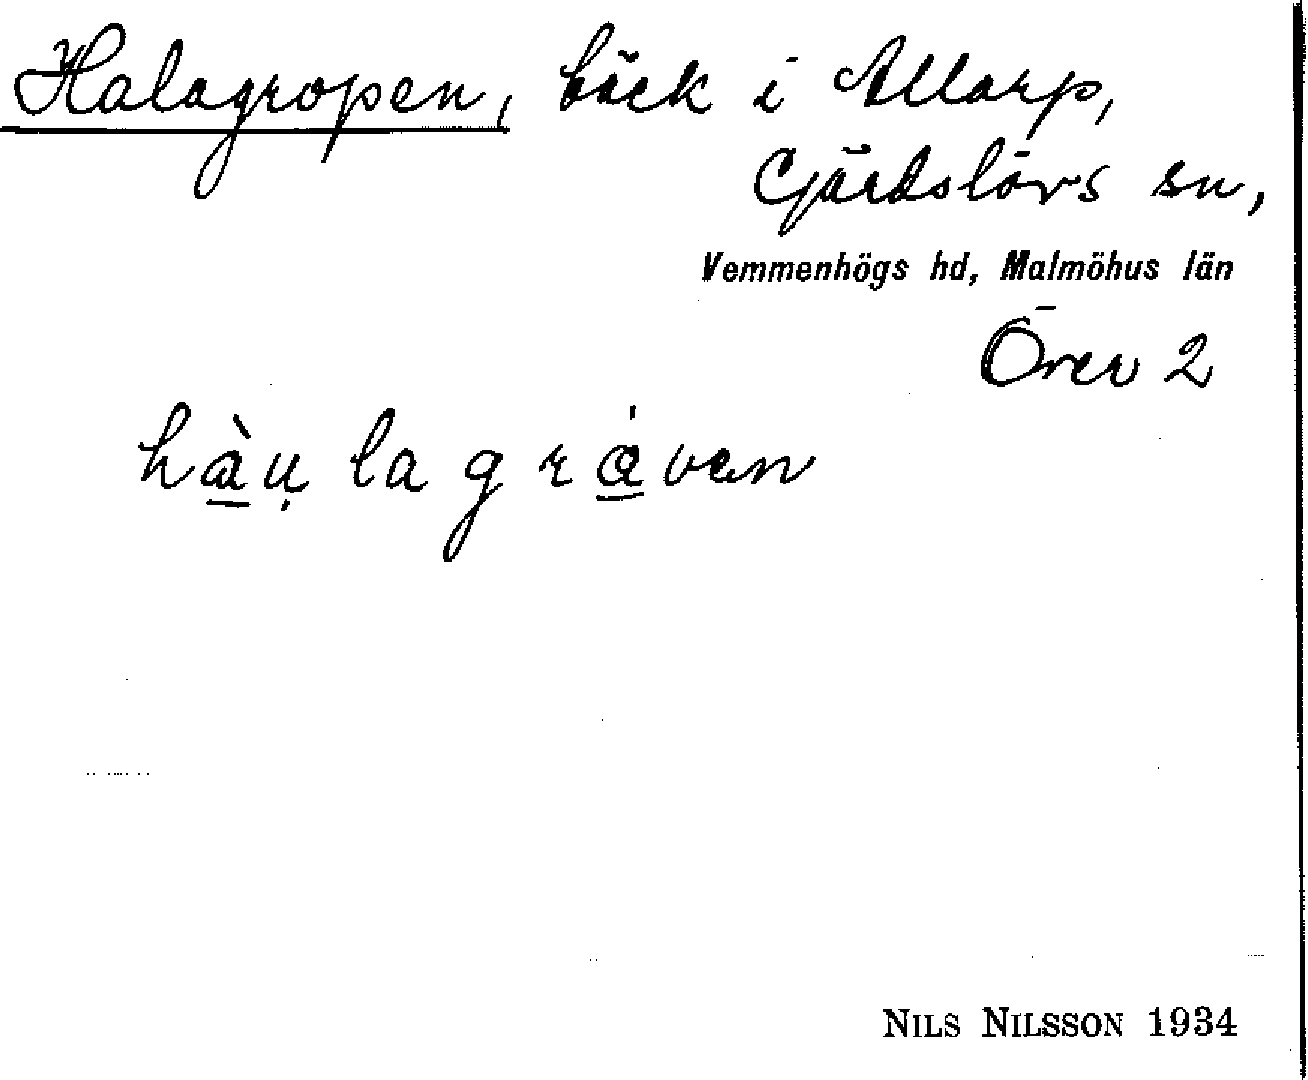 Halagropen, bäck i Allarp,
Gärdslövs sn,
Vemmenhögs hd, Malmöhus län
Över 2
hàụ lagráven
NILS NILSSON 1934